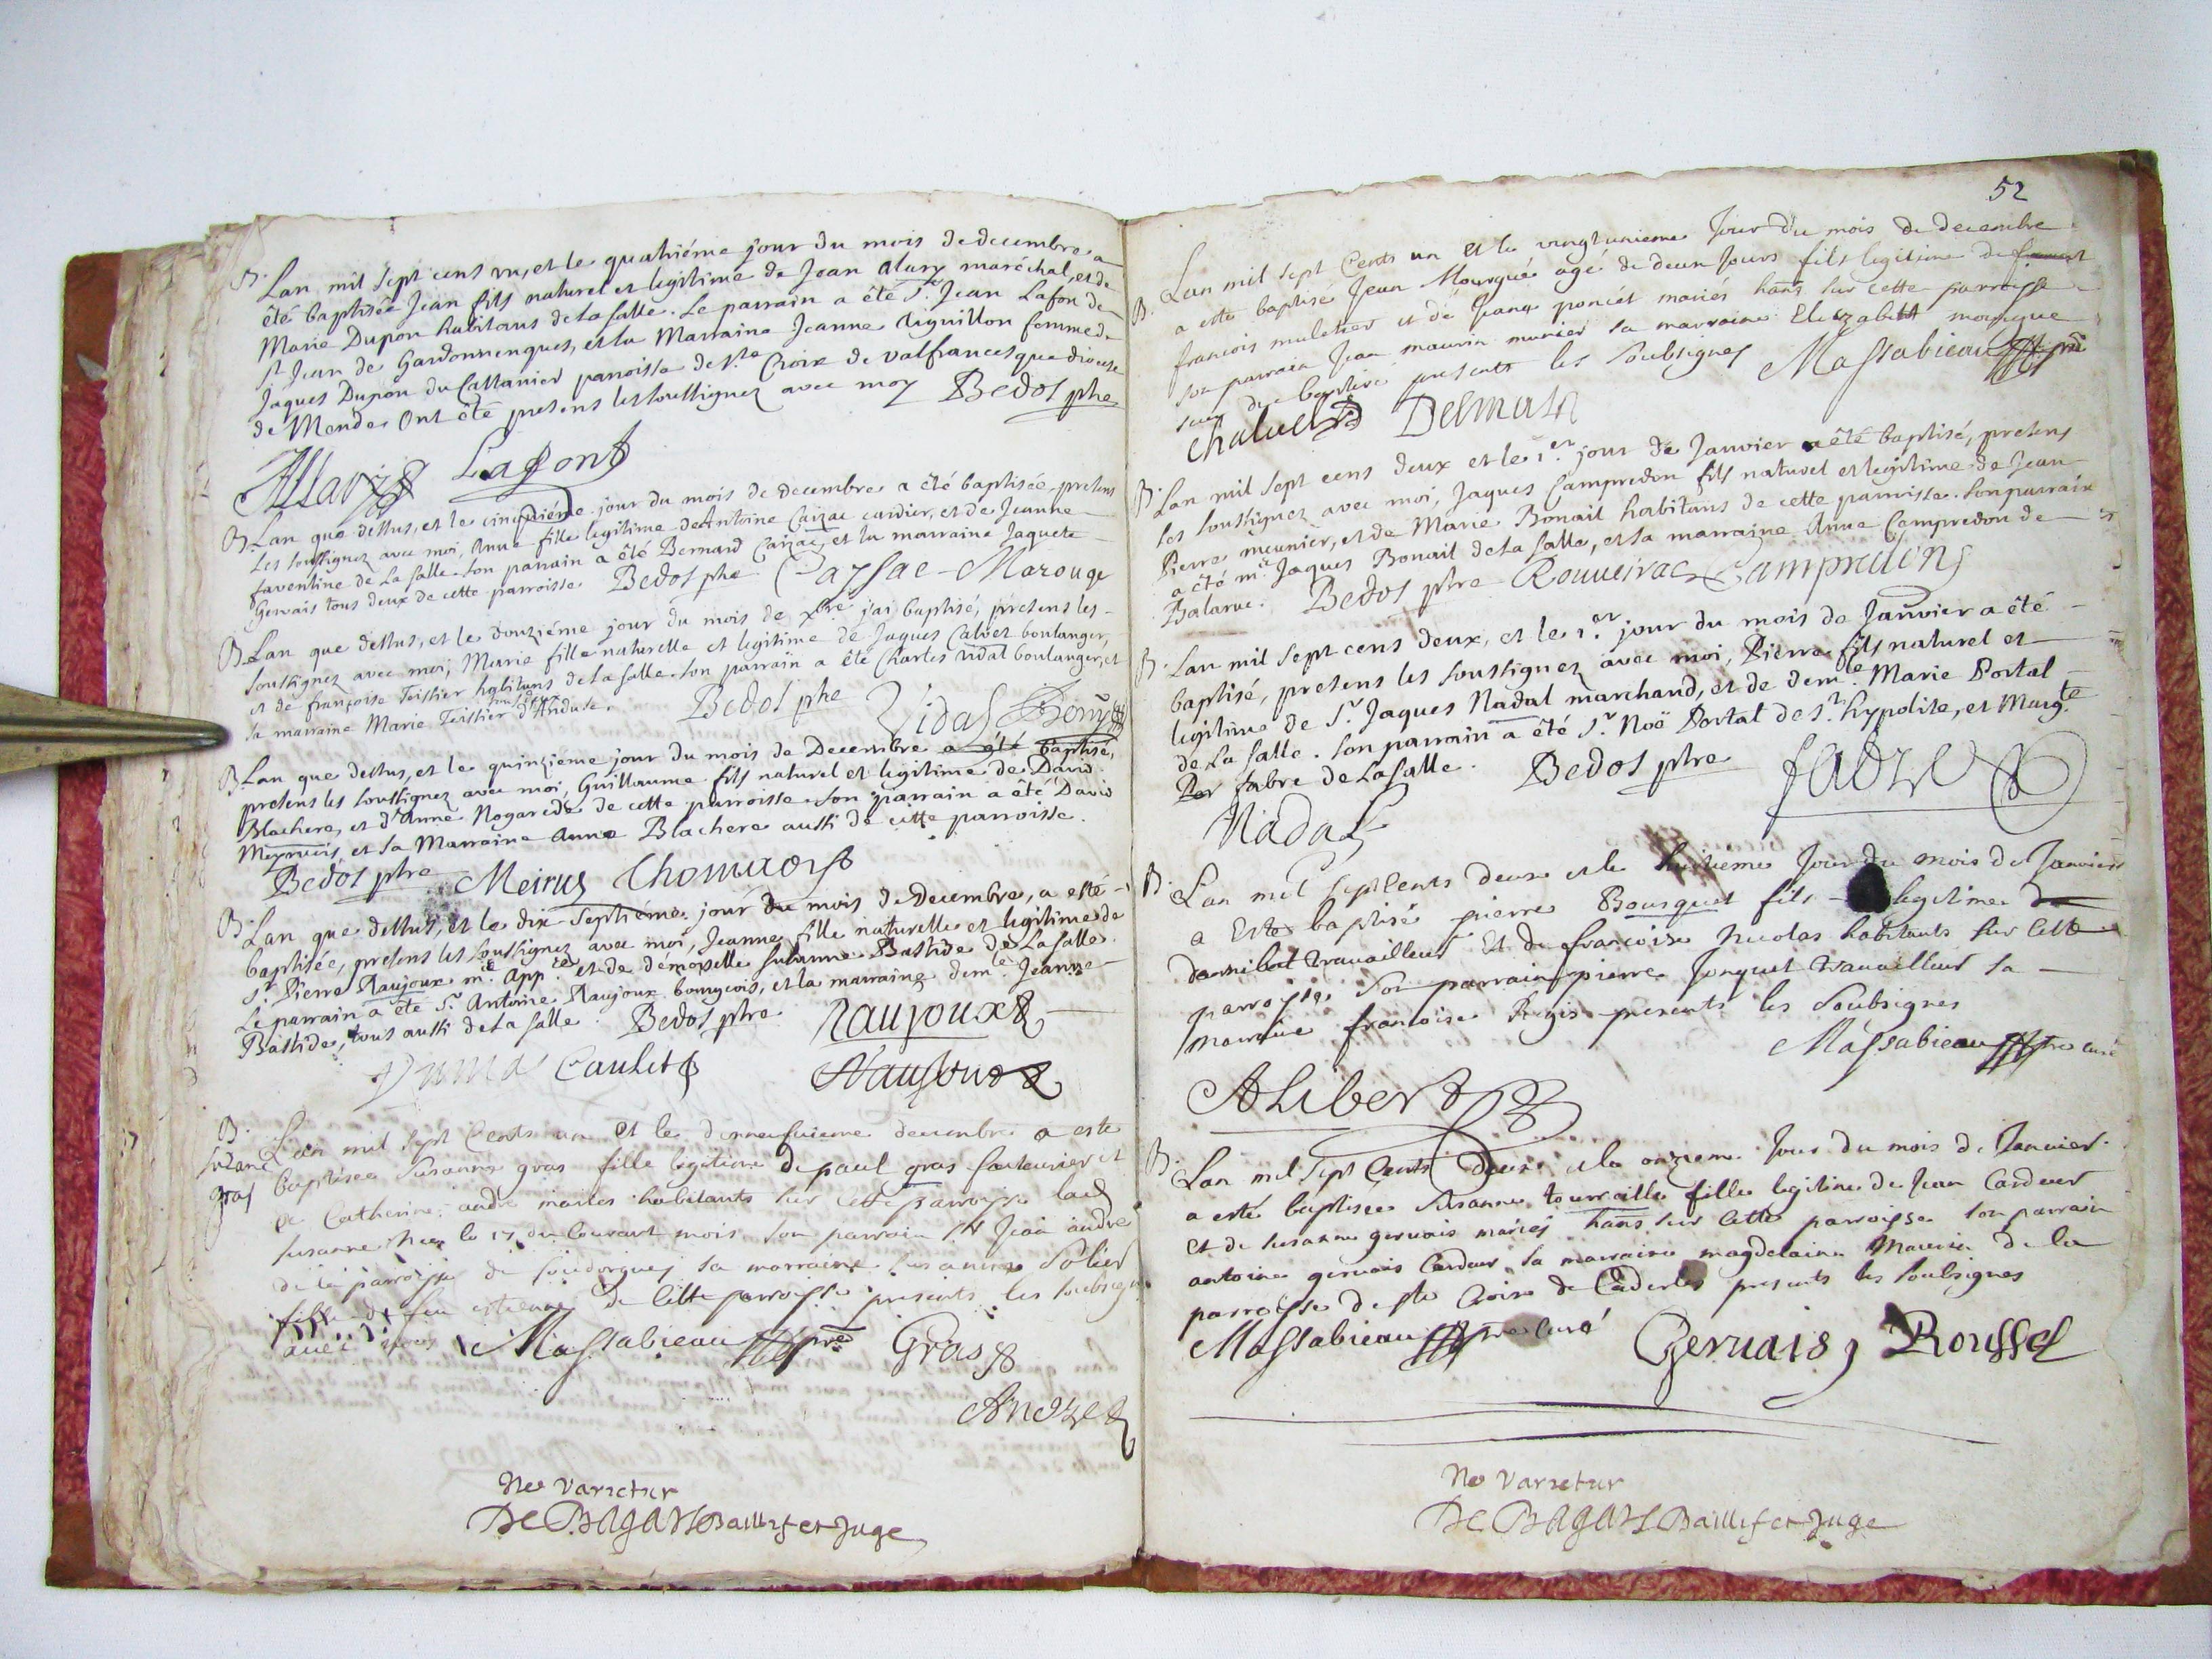 B. Lan mil sept cens un, et le quatriéme jour du mois de decembre a
été baptisée Jean fils naturel et legitime de Jean Alary maréchal, et de
Marie Dupon habitans de la salle. Le parrain a été Sr. Jean Lafon de
St Jean de Gardonnenques, et la Marraine Jeanne Aiguillon femme de
Jaques Dupon du Castanier parroisse de Ste Croix de valfrancesque diocese
de Mende. Ont été presens les soussignez avec moy Bedos ptre
Allary Lafont
B. Lan que dessus, et le cinquiéme jour du mois de decembre a été baptisée, presens
les soussignez avec moi, Anne fille legitime de Antoine Caizac cardier, et de Jeanne
faventine de La salle. son parrain a été Bernard Caizac, et la marraine Jaquete
Gervais tous deux de cette parroisse. Bedos ptre Caysac Marouge
B. Lan que dessus, et le douziéme jour du mois de xbre j'ai baptisé, presens les
soussignez avec moi, Marie fille naturelle et legitime de Jaques Calvet boulanger,
et de françoise Teissier habitans de la salle. son parrain a été Charles vidal boulanger, et
la marraine Marie Teissier d'Anduse. Bedos ptre Vidal
B. Lan que dessus, et le quinziéme jour du mois de Decembre a été baptisé,
presens les soussignez avec moi, Guillaume fils naturel et legitime de David
Blachere, et d'Anne Nogarede de cette parroisse. son parrain a été David
Meyrueis, et sa Marraine Anne Blachere aussi de cette parroisse.
Bedos ptre Meirus
B. Lan que dessus, et le dix septiéme jour du mois de Decembre, a esté
baptisée, presens les soussignez avec moi, Jeanne fille naturelle et legitime de
Sr. Pierre Raujoux me. appre. et de démoiselle susanne Bastide de La salle.
Le parrain a été Sr. Antoine Raujoux bourgeois, et la marraine demle. Jeanne
Bastide, tous aussi de la salle. Bedos ptre Raujoux
Caulet Raujoux
B. Lan mil sept Cents un et le dixneufuieme decembre a esté
suzane baptisee susanne gras fille legitime de paul gras et
gras de Catherine andre mariés habitants sur cette parroisse lad
susanne nee le 17 du Courant mois son parrain Sr Jean andre
de la parroisse de soudorgues sa marraine susanne Solier
fille de feu estienne de cette parroisse presents les soubsignes
avec nous Massabieau ptre Gras
Andre
Ne varietur
De Bagars Baillif et Juge
52
B. Lan mil sept Cents un et le vingtunieme Jour du mois de decembre
a esté baptisé Jean Mourgue agé de deux Jours fils legitime de
francois muletier et de Jeane poncet mariés hans sur cette parroisse
son parrain Jean maurin munier sa marraine Elizabeth mourgue
seur du baptisé presents les soubsignes Massabieau ptre
Chaluel Delmas
B. Lan mil sept cens deux et le 1er. jour de Janvier a été baptisé, presens
les soussignez avec moi, Jaques Campredon fils naturel et legitime de Jean
Pierre meunier, et de Marie Bonail habitans de cette parroisse. son parrain
a été me. Jaques Bonail de la salle, et sa marraine Anne Campredon de
Balarue. Bedos ptre Rouveirac Campredon
B. Lan mil sept cens deux, et le 1er. jour du mois de Janvier a été
baptisé, presens les soussignez avec moi, Pierre fils naturel et
legitime de Sr. Jaques Nadal marchand, et de demle. Marie Portal
de La salle. son parrain a été Sr. Noë Portal de St. hypolite, et Margte
Per fabre de La salle. Bedos ptre fabre
Nadal
B. Lan mil sept Cents deux et le huitieme Jour du mois de Janvier
a Esté baptisé pierre Bousquet fils legitime de
dannibal travailleur Et de francoise nicolas habitants sur cette
parroisse son parrain pierre Jonquet travailleur sa
marraine francoise Regis presents les soubsignes
Massabieau ptre curé
Alibert
B. Lan mil sept Cents Deux et le onzieme Jour du mois de Janvier
a esté baptisee susanne tourraille fille legitime de Jean Cardeur
et de susanne gervais mariés hans sur cette parroisse son parrain
antoine gervais Cardeur sa marraine magdelaine Maurin de la
parroisse de ste Croix de Caderles presents les soubsignes
Massabieau ptre curé Gervais Roussel
Ne varietur
De Bagars Baillif et Juge